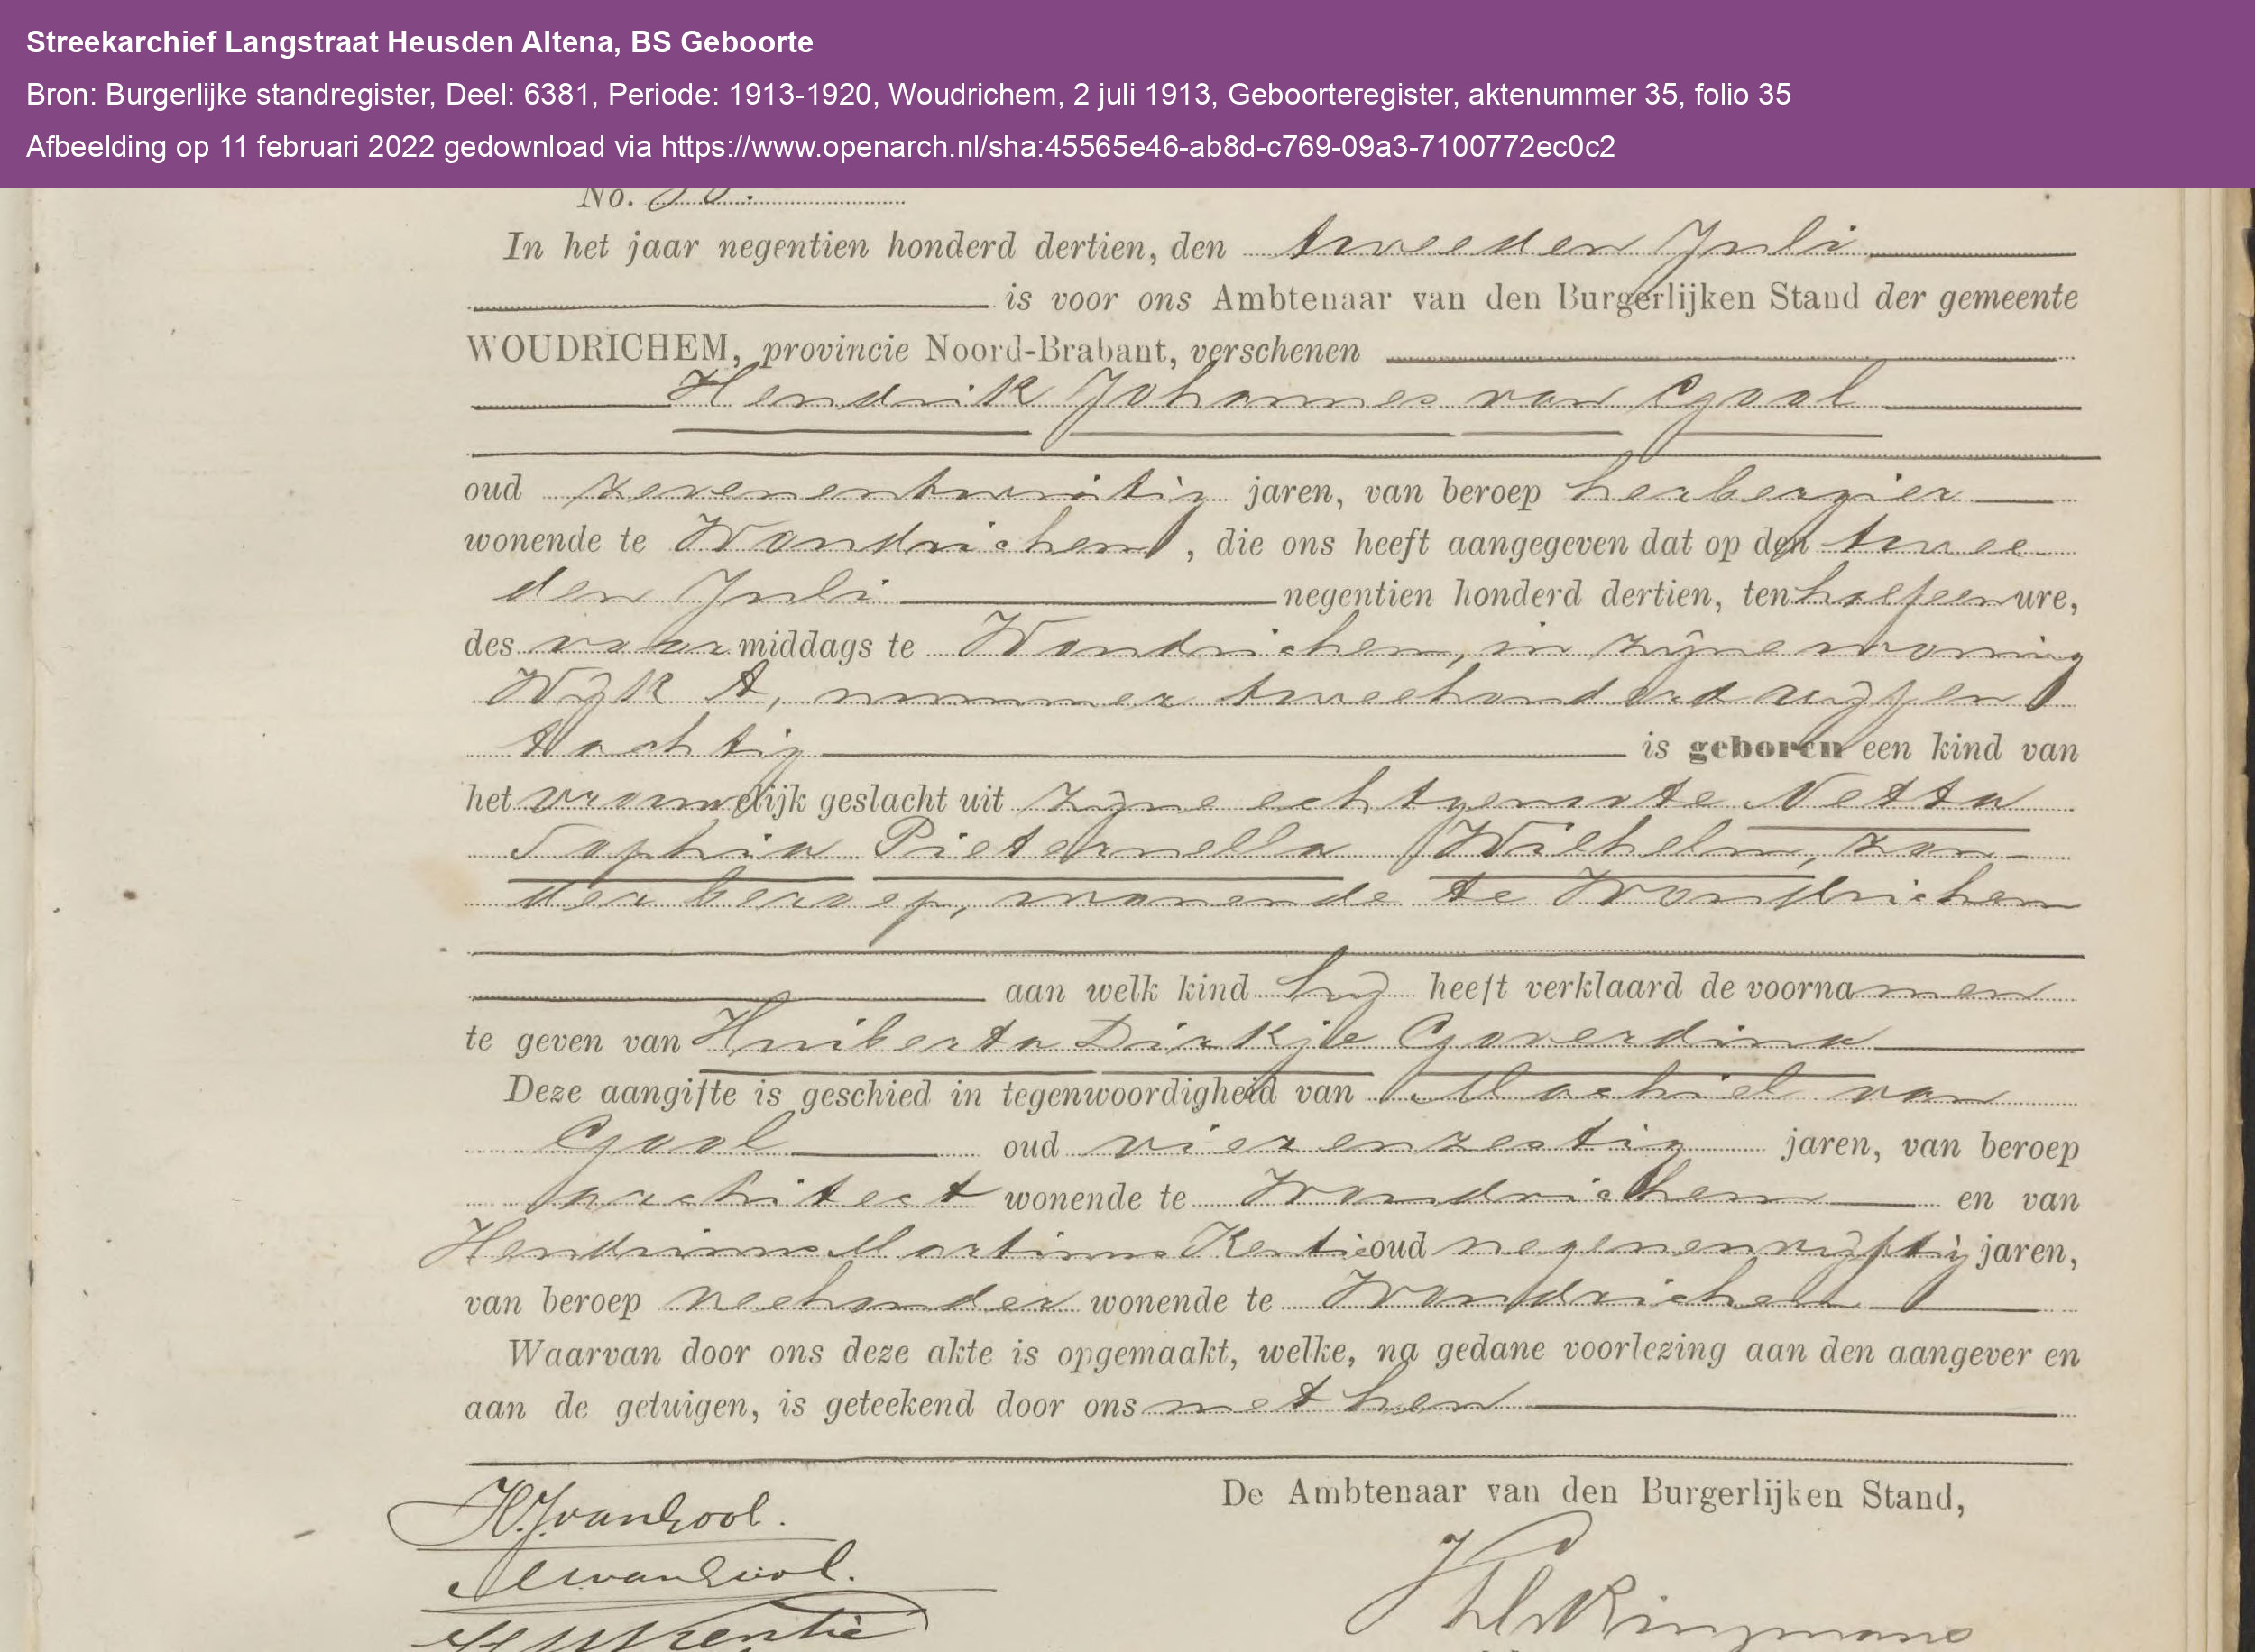 Streekarchief Langstraat Heusden Altena, BS Geboorte
Bron: Burgerlijke standregister, Deel: 6381, Periode: 1913-1920, Woudrichem, 2 juli 1913, Geboorteregister, aktenummer 35, folio 35
Afbeelding op 11 februari 2022 gedownload via https://www.openarch.nl/sha:45565e46-ab8d-c769-09a3-7100772ec0c2
No. 35.
In het jaar negentien honderd dertien, den tweeden Juli
is voor ons Ambtenaar van den Burgerlijken Stand der gemeente
WOUDRICHEM, provincie Noord-Brabant, verschenen
Hendrik Johannes van Gool
oud zevenentwintig jaren, van beroep herbergier
wonende te Woudrichem, die ons heeft aangegeven dat op den twee
den Juli negentien honderd dertien, ten half een ure,
des voormiddags te Woudrichem, in zijne woning
Wijk A, nummer tweehonderd vijfen
tachtig is geboren een kind van
het vrouwelijk geslacht uit zijne echtgenoote Netta
Sophia Pieternella Wilhelm, zon-
der beroep, wonende te Woudrichem
aan welk kind hij heeft verklaard de voornamen
te geven van Huiberta Dirkje Goverdina
Deze aangifte is geschied in tegenwoordigheid van Machiel van
Gool oud vierenzestig jaren, van beroep
architect wonende te Woudrichem en van
Hendrinus Martinus Kentie oud negenenvijftig jaren,
van beroep veehouder wonende te Woudrichem
Waarvan door ons deze akte is opgemaakt, welke, na gedane voorlezing aan den aangever en
aan de getuigen, is geteekend door ons met hen
De Ambtenaar van den Burgerlijken Stand,
H.J. van Gool.
M van Gool.
H M Kentie